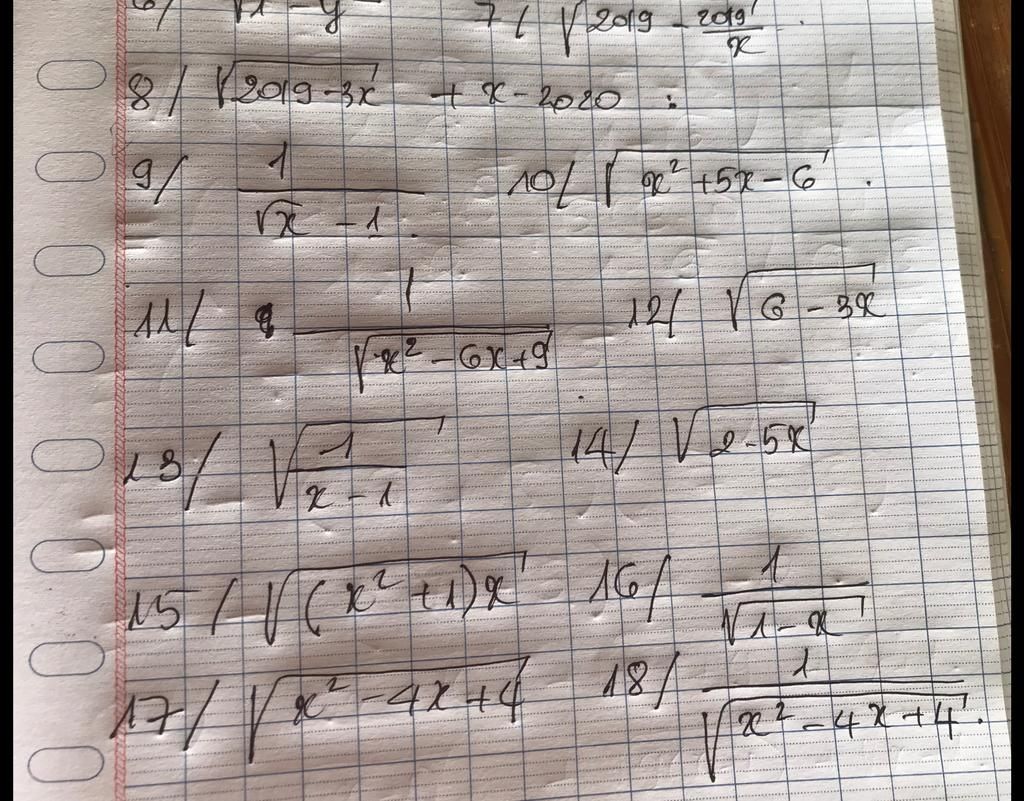 6/ √1 - y 7/ √2019 - 2019/x .
8/ √2019-3x + x-2020 :
9/ 1/(√x - 1) . 10/ √x² +5x-6 .
11/ 1/√x² - 6x+9 12/ √6 - 3x
13/ √1/(x-1) 14/ √2-5x
15/ √(x² +1)x 16/ 1/√1-x
17/ √x² -4x+4 18/ 1/√x² -4x+4 .